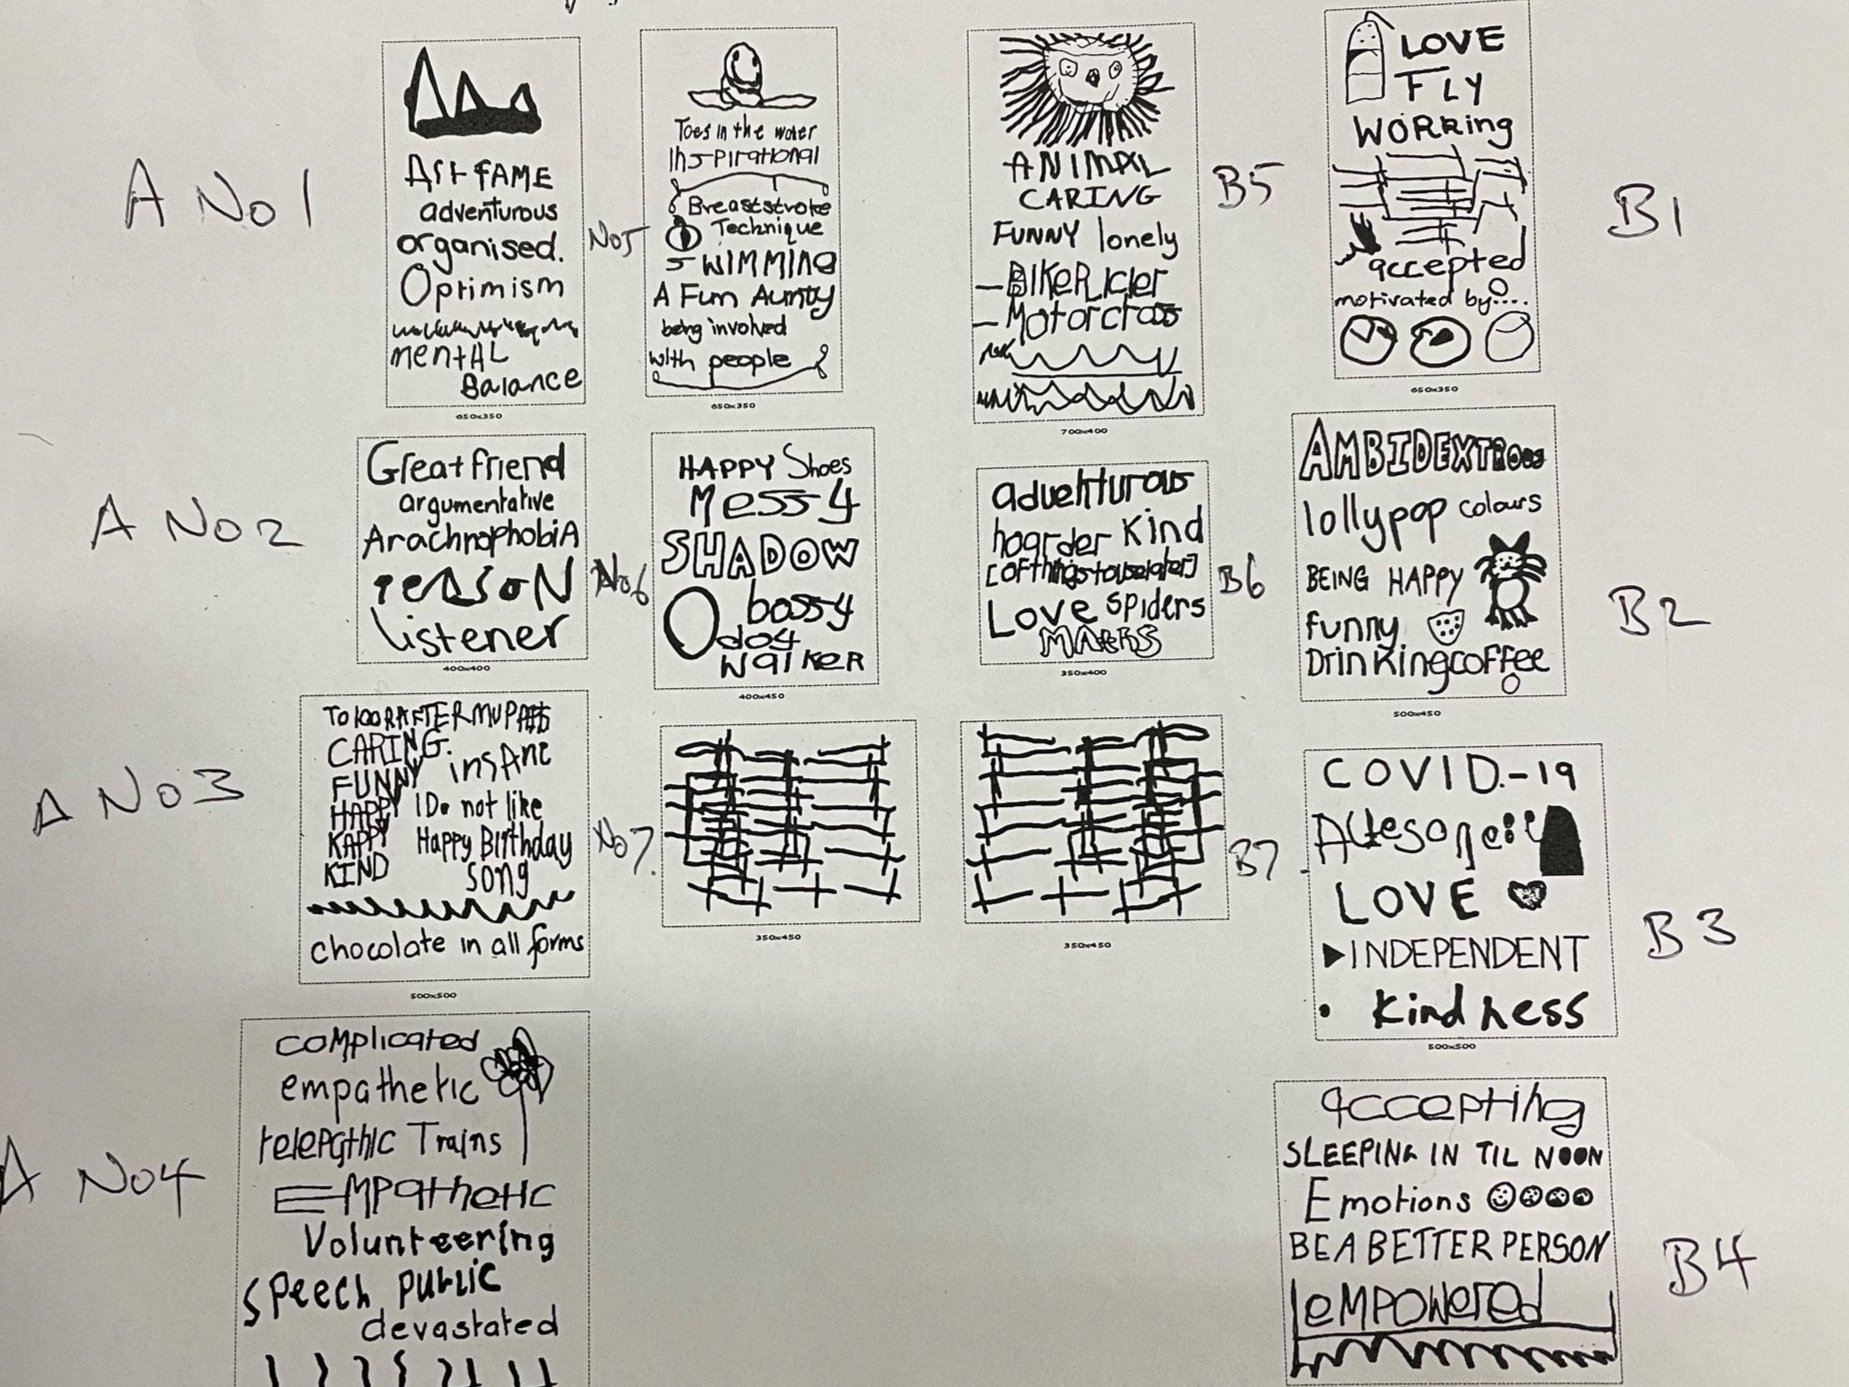 A No1
Art FAME
adventurous
organised.
Optimism
mentAL
Balance
650x350
No5
Toes in the water
Inspirational
Breaststroke
Technique
SWIMMING
A Fun Aunty
being involved
with people
650x350
ANIMAL
CARING
FUNNY lonely
BIKE Rider
Motorcross
700x400
B5
LOVE
FLY
WORKing
accepted
motivated by....
650x350
B1
A No2
Great friend
argumentative
ArachnophobiA
reasoN
Listener
400x400
No6
HAPPY Shoes
Messy
SHADOW
bossy
dog
WalKER
400x450
adventurous
hoarder Kind
[of things to use later]
Love spiders
MARKS
350x400
B6
AMBIDEXTROUS
lollypop colours
BEING HAPPY
funny
Drinking coffee
500x450
B2
A No3
CARING.
FUNNY insAne
HAPPY I Do not like
KAPPY Happy Birthday
KIND song
chocolate in all forms
500x500
No7.
350x450
350x450
B7
COVID.-19
LOVE
INDEPENDENT
Kindness
500x500
B3
A No4
complicated
empathetic
telepathic Trains
EMPathetic
Volunteering
speech public
devastated
accepting
SLEEPING IN TIL NOON
Emotions
BE A BETTER PERSON
eMPOWered
B4